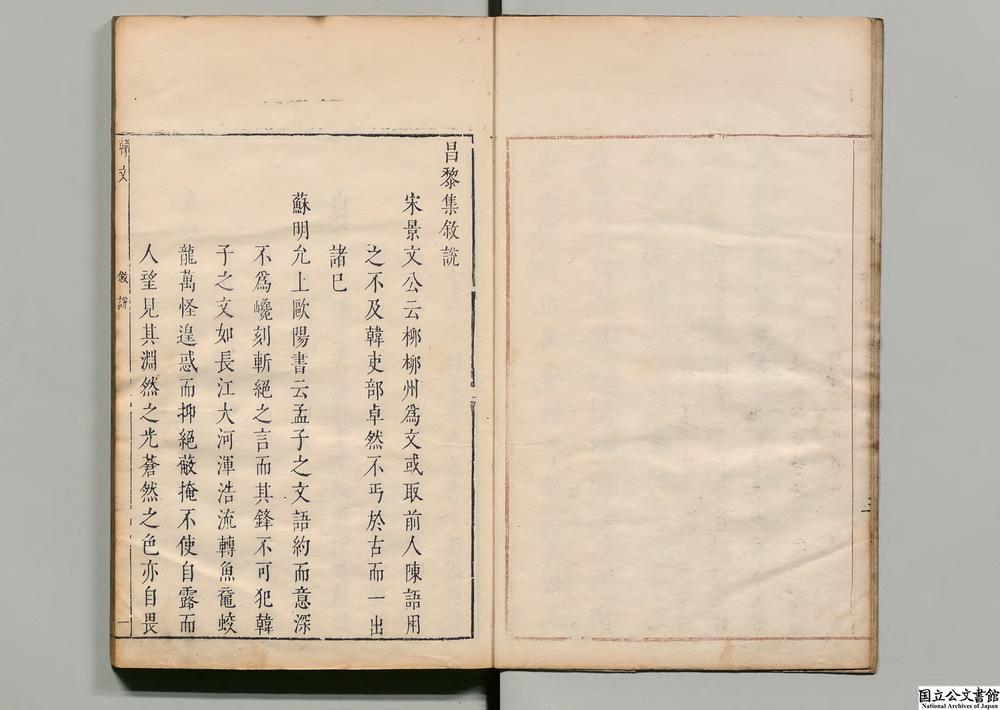 昌黎集敘說
宋景文公云栁栁州爲文或取前人陳語用
之不及韓吏部卓然不丐於古而一出
諸已
蘇明允上歐陽書云孟子之文語約而意深
不爲巉刻斬絕之言而其鋒不可犯韓
子之文如長江大河渾浩流轉魚黿蛟
龍萬怪遑惑而抑絕蔽掩不使自露而
人望見其淵然之光蒼然之色亦自畏
韓文
敘說
一
国立公文書館
National Archives of Japan